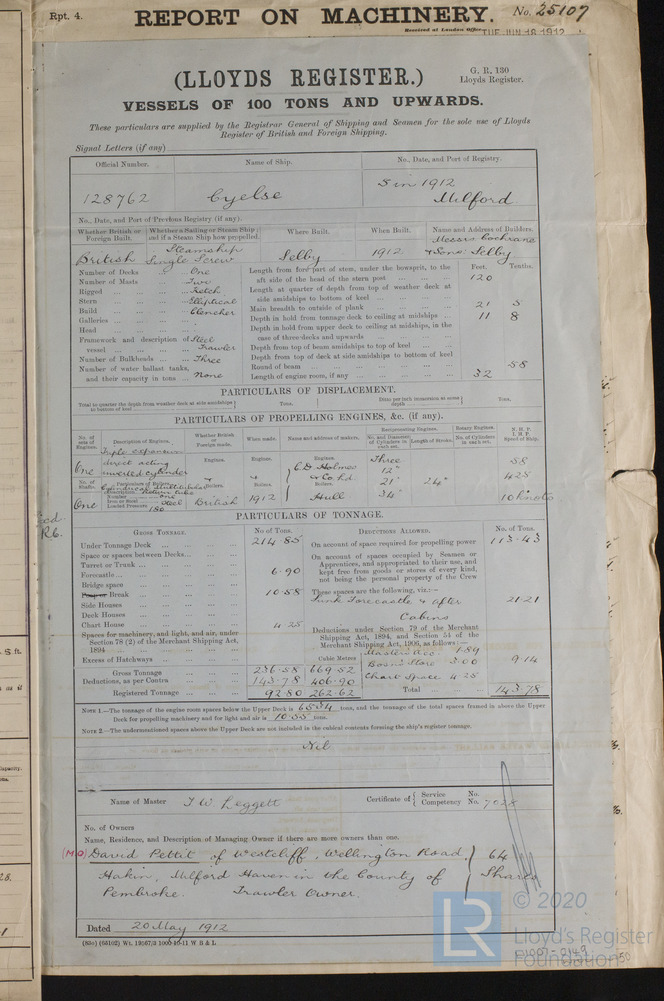 Rpt. 4.
REPORT ON MACHINERY.
No. 25107
Received at London Office TUE JUN 18 1912
(LLOYDS REGISTER.)
G. R. 130
Lloyds Register.
VESSELS OF 100 TONS AND UPWARDS.
These particulars are supplied by the Registrar General of Shipping and Seamen for the sole use of Lloyds
Register of British and Foreign Shipping.
Signal Letters (if any)
Official Number. Name of Ship. No., Date, and Port of Registry.
128762 Cyelse 5 in 1912
Milford
No., Date, and Port of Previous Registry (if any).
Whether British or Foreign Built. Whether a Sailing or Steam Ship; and if a Steam Ship how propelled. Where Built. When Built. Name and Address of Builders.
British Steamship Single Screw Selby 1912 Messrs Cochrane & Sons. Selby
Number of Decks ... One
Number of Masts ... Two
Rigged ... Ketch
Stern ... Elliptical
Build ... Clencher
Galleries ...
Head ...
Framework and description of vessel ... Steel Trawler
Number of Bulkheads ... Three
Number of water ballast tanks, and their capacity in tons ... None
Feet. Tenths.
Length from fore part of stem, under the bowsprit, to the
aft side of the head of the stern post ... 120
Length at quarter of depth from top of weather deck at
side amidships to bottom of keel ...
Main breadth to outside of plank ... 21 5
Depth in hold from tonnage deck to ceiling at midships ... 11 8
Depth in hold from upper deck to ceiling at midships, in the
case of three decks and upwards ...
Depth from top of beam amidships to top of keel ...
Depth from top of deck at side amidships to bottom of keel
Round of beam ... 58
Length of engine room, if any ... 32
PARTICULARS OF DISPLACEMENT.
Total to quarter the depth from weather deck at side amidships to bottom of keel Tons. Ditto per inch immersion at same depth Tons.
PARTICULARS OF PROPELLING ENGINES, &c. (if any).
No. of sets of Engines. Description of Engines. Whether British or Foreign made. When made. Name and address of makers. Reciprocating Engines. Rotary Engines. N.H.P. I.H.P. Speed of Ship.
No. and Diameter of Cylinders in each set. Length of Stroke. No. of Cylinders in each set.
One Triple expansion direct acting inverted cylinder
Engines. Engines. Engines.
C. D. Holmes & Co. Ld Hull
Three 12" 21" 34" 24"
58
425
10 knots
No. of Shafts. Particulars of Boilers. Boilers. Boilers. Boilers.
One Cylindrical Multitubular Return tube
Number One
Iron or Steel Steel
Loaded Pressure 180
British 1912
PARTICULARS OF TONNAGE.
GROSS TONNAGE. No of Tons.
Under Tonnage Deck ... 214.85
Space or spaces between Decks ...
Turret or Trunk ...
Forecastle ... 6.90
Bridge space
Break ... 10.58
Side Houses
Deck Houses
Chart House ... 4.25
Spaces for machinery, and light, and air, under
Section 78 (2) of the Merchant Shipping Act,
1894 ...
Excess of Hatchways ...
Cubic Metres
Gross Tonnage 236.58 669.52
Deductions, as per Contra 143.78 406.90
Registered Tonnage 92.80 262.62
DEDUCTIONS ALLOWED. No. of Tons.
On account of space required for propelling power 113.43
On account of spaces occupied by Seamen or
Apprentices, and appropriated to their use, and
kept free from goods or stores of every kind,
not being the personal property of the Crew
These spaces are the following, viz.:—
Sunk Forecastle & after Cabins 21.21
Deductions under Section 79 of the Merchant
Shipping Act, 1894, and Section 54 of the
Merchant Shipping Act, 1906, as follows:—
Masters acc. 1.89
Bosn's Store 3.00
Chart Space 4.25
9.14
Total ... 143.78
NOTE 1.—The tonnage of the engine room spaces below the Upper Deck is 65.34 tons, and the tonnage of the total spaces framed in above the Upper
Deck for propelling machinery and for light and air is 10.55 tons.
NOTE 2.—The undermentioned spaces above the Upper Deck are not included in the cubical contents forming the ship's register tonnage.
Nil
Name of Master J W Leggett Certificate of Service No. Competency No. 7028
No. of Owners
Name, Residence, and Description of Managing Owner if there are more owners than one.
(M.O) David Pettit of Westcliff, Wellington Road, 64
Hakin, Milford Haven in the County of Shares
Pembroke. Trawler Owner.
Dated 20 May 1912
© 2020
LR
Lloyd's Register
Foundation